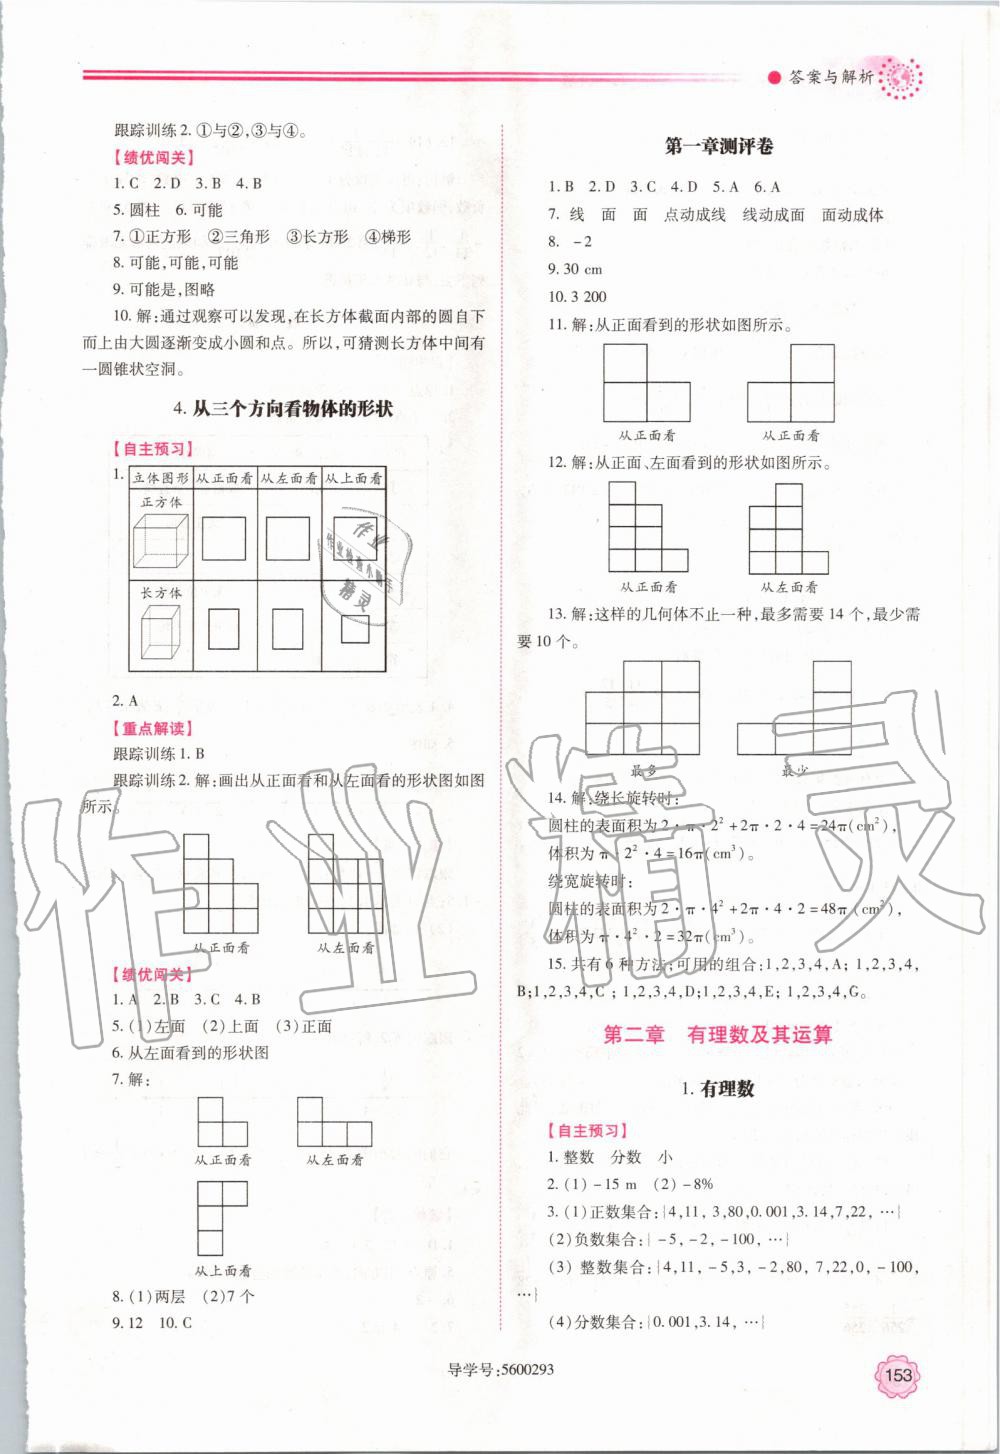 答案与解析
跟踪训练2. ①与②,③与④。
【绩优闯关】
1. C  2. D  3. B  4. B
5. 圆柱  6. 可能
7. ①正方形  ②三角形  ③长方形  ④梯形
8. 可能,可能,可能
9. 可能是,图略
10. 解:通过观察可以发现,在长方体截面内部的圆自下
而上由大圆逐渐变成小圆和点。所以,可猜测长方体中间有
一圆锥状空洞。
4. 从三个方向看物体的形状
【自主预习】
1.
立体图形 从正面看 从左面看 从上面看
正方体
长方体
2. A
【重点解读】
跟踪训练1. B
跟踪训练2. 解:画出从正面看和从左面看的形状图如图
所示。
从正面看  从左面看
【绩优闯关】
1. A  2. B  3. C  4. B
5. (1)左面  (2)上面  (3)正面
6. 从左面看到的形状图
7. 解:
从正面看  从左面看
从上面看
8. (1)两层  (2)7个
9. 12  10. C
第一章测评卷
1. B  2. D  3. C  4. D  5. A  6. A
7. 线  面  面  点动成线  线动成面  面动成体
8. -2
9. 30 cm
10. 3 200
11. 解:从正面看到的形状如图所示。
从正面看  从正面看
12. 解:从正面、左面看到的形状如图所示。
从正面看  从左面看
13. 解:这样的几何体不止一种,最多需要14个,最少需
要10个。
最多  最少
14. 解:绕长旋转时:
圆柱的表面积为2·π·2²+2π·2·4=24π(cm²),
体积为π·2²·4=16π(cm³)。
绕宽旋转时:
圆柱的表面积为2·π·4²+2π·4·2=48π(cm²),
体积为π·4²·2=32π(cm³)。
15. 共有6种方法;可用的组合:1,2,3,4,A; 1,2,3,4,
B;1,2,3,4,C ; 1,2,3,4,D;1,2,3,4,E; 1,2,3,4,G。
第二章  有理数及其运算
1. 有理数
【自主预习】
1. 整数  分数  小
2. (1) -15 m  (2) -8%
3. (1)正数集合:{4,11, 3,80,0.001,3.14,7,22, …}
(2)负数集合:{ -5, -2, -100, …}
(3) 整数集合:{4,11, -5,3, -2,80, 7,22,0, -100,
…}
(4)分数集合:{0.001,3.14, …}
导学号:5600293
153
作业
作业检查小助手
精灵
作业精灵